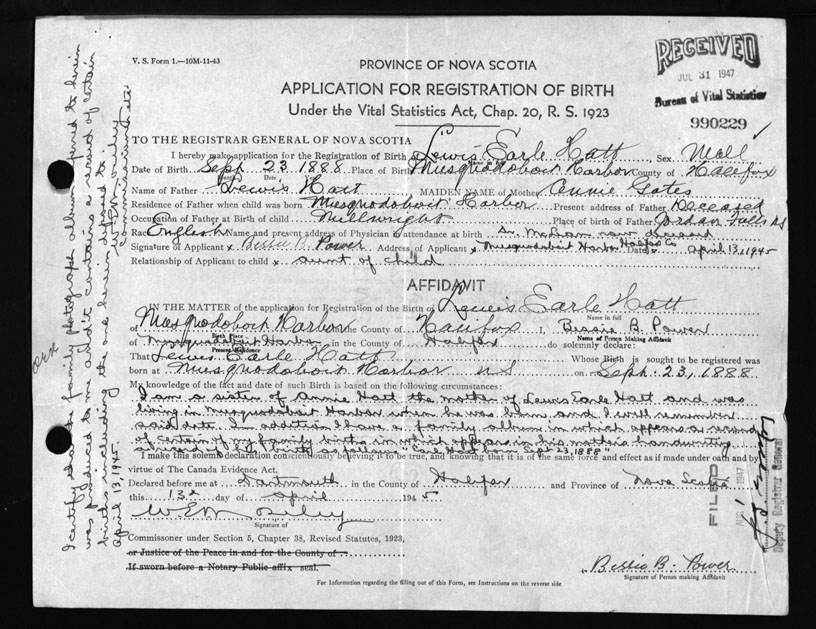 V. S. Form 1.—10M-11-43
PROVINCE OF NOVA SCOTIA
APPLICATION FOR REGISTRATION OF BIRTH
Under the Vital Statistics Act, Chap. 20, R. S. 1923
RECEIVED
JUL 31 1947
Bureau of Vital Statistics
990229
TO THE REGISTRAR GENERAL OF NOVA SCOTIA
I hereby make application for the Registration of Birth of Lewis Earle Hatt Sex Male
Name in full
Date of Birth Sept 23 1888 Place of Birth Musquodoboit Harbor County of Halifax
Month Date Year
Name of Father Lewis Hatt MAIDEN NAME of Mother Annie Gates
Residence of Father when child was born Musquodoboit Harbor Present address of Father Deceased
Occupation of Father at Birth of child Millwright Place of birth of Father Jordan Falls NS
Race English Name and present address of Physician in attendance at birth Dr. now deceased
Signature of Applicant x Bessie B. Power Address of Applicant x Musquodoboit Harbor Halifax Co Date April 13, 1945
Relationship of Applicant to child x aunt of child
AFFIDAVIT
IN THE MATTER of the application for Registration of the Birth of Lewis Earle Hatt
Name in full
of Musquodoboit Harbor in the County of Halifax I, Bessie B. Power
Name of Person Making Affidavit
of Musquodoboit Harbor in the County of Halifax do solemnly declare:
Present Residence
That Lewis Earle Hatt Whose Birth is sought to be registered was
born at Musquodoboit Harbor NS on Sept. 23, 1888
My knowledge of the fact and date of such Birth is based on the following circumstances:
I am a sister of Annie Hatt the mother of Lewis Earle Hatt and was
living in Musquodoboit Harbor when he was born and I well remember
said date. In addition I have a family album in which appears a record
of certain of my family births in which appears in his mother's handwriting
a record of birth as follows "Earl Hatt born Sept 23, 1888"
I make this solemn declaration conscientiously believing it to be true, and knowing that it is of the same force and effect as if made under oath and by
virtue of The Canada Evidence Act.
Declared before me at Dartmouth in the County of Halifax and Province of Nova Scotia
this 13th day of April 1945
Signature of
Commissioner under Section 5, Chapter 38, Revised Statutes, 1923,
or Justice of the Peace in and for the County of
If sworn before a Notary Public affix seal.
Bessie B. Power
Signature of Person making Affidavit
For Information regarding the filling out of this Form, see Instructions on the reverse side
I certify that the family photograph album referred to herein
was produced to me and it contains a record of certain
births including the one herein referred to
April 13, 1945.
FILED
AUG 1 1947
Deputy Registrar General